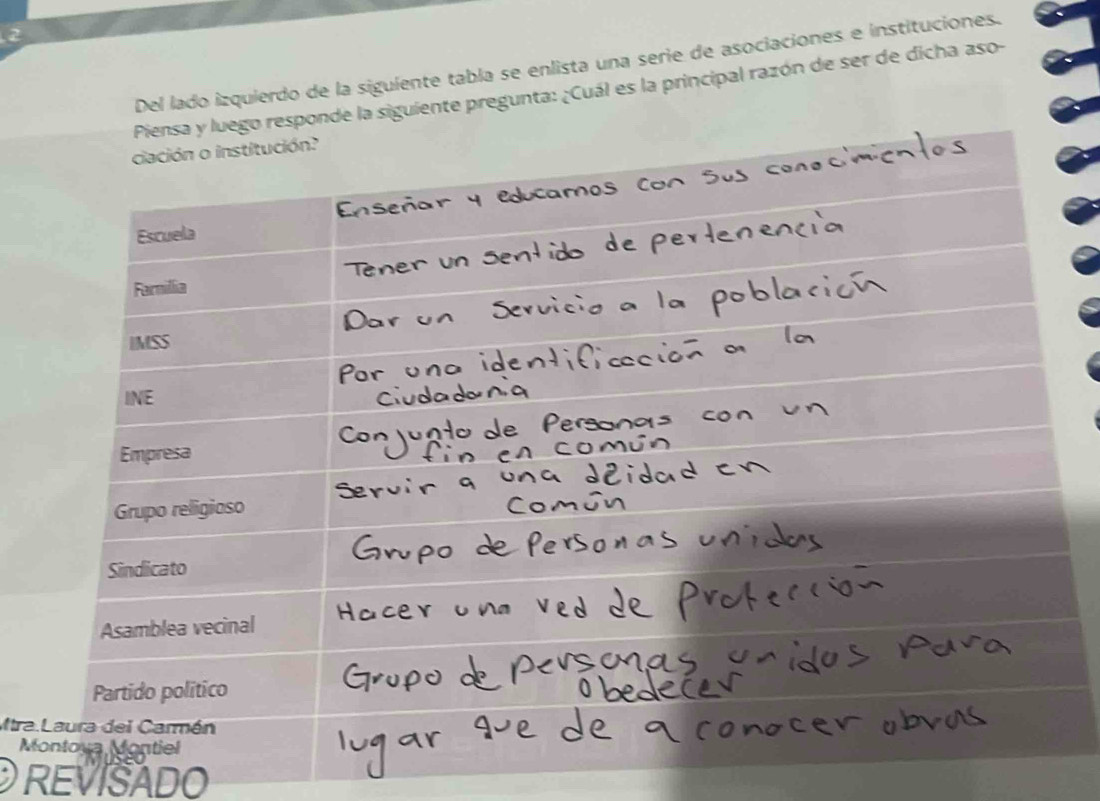 2
Del lado izquierdo de la siguiente tabla se enlista una serie de asociaciones e instituciones.
Piensa y luego responde la siguiente pregunta: ¿Cuál es la principal razón de ser de dicha aso-
ciación o institución?
Escuela Enseñar y educarnos con sus conocimientos
Familia Tener un sentido de pertenencia
IMSS Dar un servicio a la población
INE Por una identificoción a la
ciudadania
Empresa Conjunto de Personas con un
fin en común
Grupo religioso Servir a una deidad en
común
Sindicato Grupo de Personas unidas
Asamblea vecinal Hacer una red de Protección
Partido político Grupo de personas unidas para
obedecer
Museo lugar que de a conocer obras
Mtra.Laura del Carmén
Montoya Montiel
REVISADO